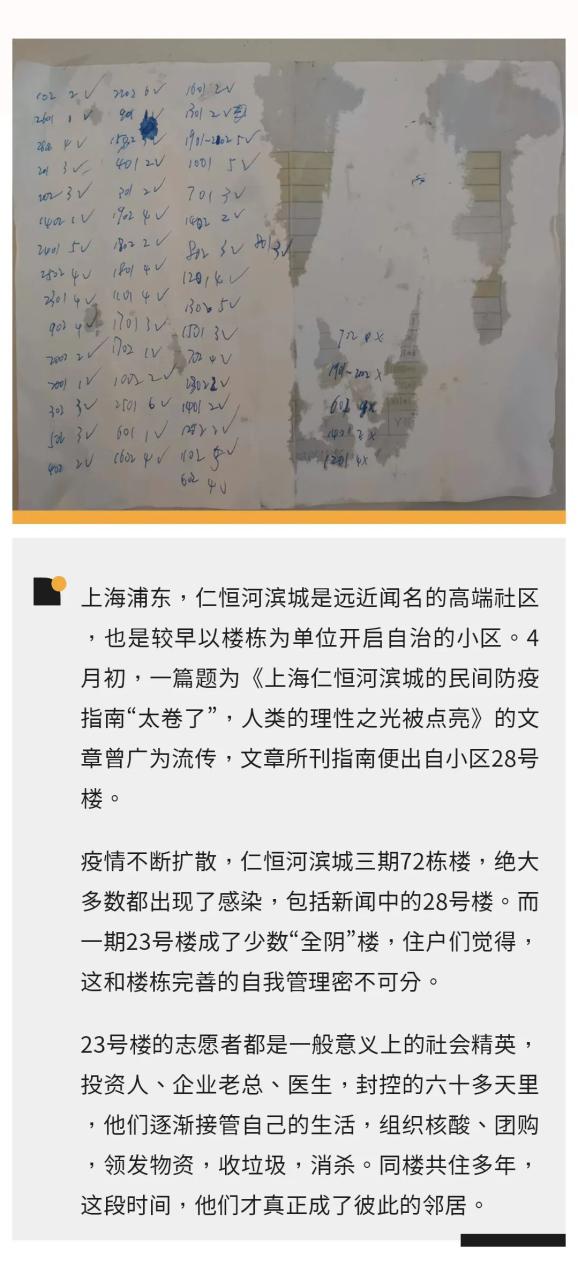 102 2✓
201 3✓
202 3✓
1402 1✓
2401 5✓
2502 4✓
2301 4✓
902 4✓
2002 2✓
2001 1✓
302 3✓
502 3✓
402 2✓
2202 6✓
401 2✓
301 2✓
1902 4✓
1802 2✓
1801 4✓
1101 4✓
1701 3✓
1702 1✓
1002 2✓
2501 6✓
601 1✓
1602 4✓
1601 2✓
1301 2✓
1001 5✓
701 3✓
802 3✓ 801 3✓
1201 4✓
1302 5✓
1501 3✓
702 4✓
1401 2✓
1102 5✓
602 4✓
702 4X
602 4X
1402 2X
1201 4X
上海浦东，仁恒河滨城是远近闻名的高端社区
，也是较早以楼栋为单位开启自治的小区。4
月初，一篇题为《上海仁恒河滨城的民间防疫
指南“太卷了”，人类的理性之光被点亮》的文
章曾广为流传，文章所刊指南便出自小区28号
楼。
疫情不断扩散，仁恒河滨城三期72栋楼，绝大
多数都出现了感染，包括新闻中的28号楼。而
一期23号楼成了少数“全阴”楼，住户们觉得，
这和楼栋完善的自我管理密不可分。
23号楼的志愿者都是一般意义上的社会精英，
投资人、企业老总、医生，封控的六十多天里
，他们逐渐接管自己的生活，组织核酸、团购
，领发物资，收垃圾，消杀。同楼共住多年，
这段时间，他们才真正成了彼此的邻居。